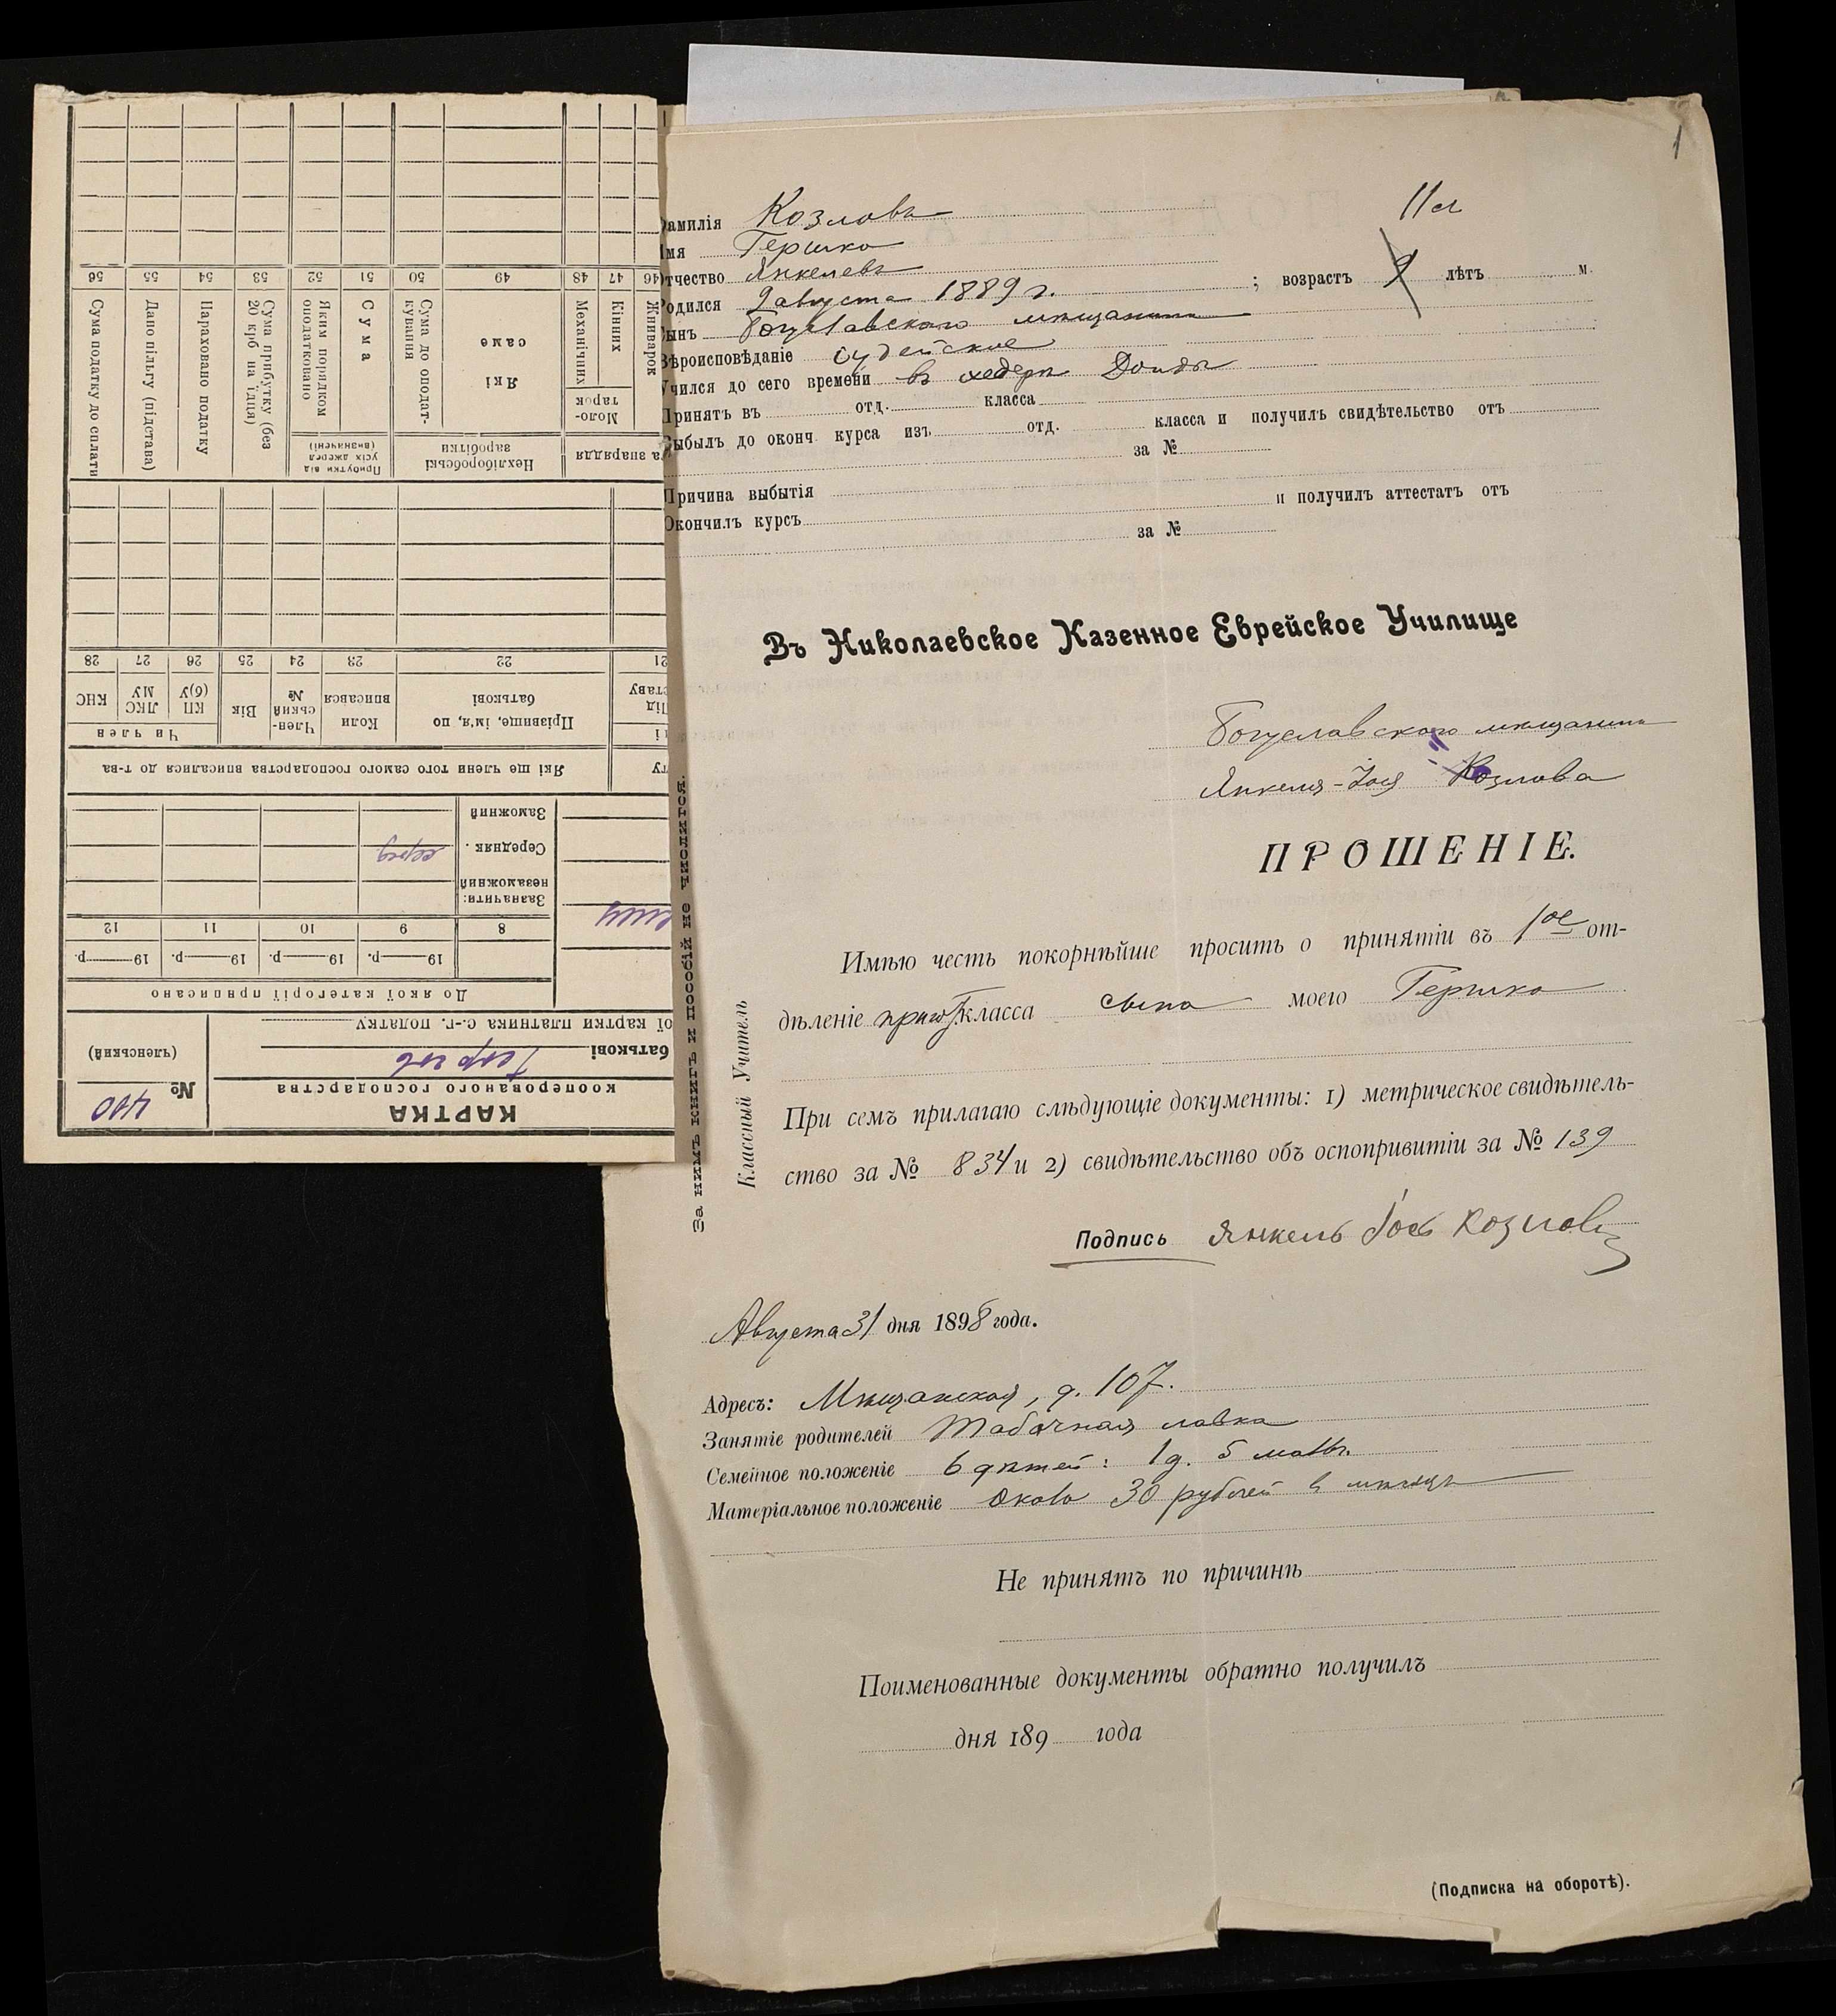 1
11 л
Фамилія Козловъ
Имя Гершко
Отчество Янкелевъ ; возрастъ 9 лѣтъ м.
Родился 9 августа 1889 г.
Сынъ Богуславскаго мѣщанина
Вѣроисповѣданіе іудейское
Учился до сего времени въ хедерѣ
Принятъ въ отд. класса
Выбылъ до оконч. курса изъ отд. класса и получилъ свидѣтельство отъ
за №
Причина выбытія
Окончилъ курсъ и получилъ аттестатъ отъ
за №
Въ Николаевское Казенное Еврейское Училище
Богуславскаго мѣщанина
Янкеля-Іося Козлова
ПРОШЕНІЕ.
Имѣю честь покорнѣйше просить о принятіи въ 1ое от-
дѣленіе пригот. класса сына моего Гершко
При семъ прилагаю слѣдующіе документы: 1) метрическое свидѣтель-
ство за № 834 и 2) свидѣтельство объ оспопривитіи за № 139
Подпись Янкель Іось Козловъ
Августа 31 дня 1898 года.
Адресъ: Мѣщанская, д. 107.
Занятіе родителей Табачная лавка
Семейное положеніе 6 дѣтей: 1 д. 5 мальч.
Матеріальное положеніе Около 30 рублей въ мѣсяцъ
Не принятъ по причинѣ
Поименованные документы обратно получилъ
дня 189 года
(Подписка на оборотѣ).
За нимъ книгъ и пособій не числится.
Классный Учитель
КАРТКА
кооперованого господарства
№ 410
(членський)
батькові
ої картки платника с.-г. податку
До якої категорії приписано
19 р. 19 р. 19 р. 19 р.
8 9 10 11 12
Зазначити:
незаможний
Середняк. серед
Заможний
Які ще члени того самого господарства вписалися до т-ва
Прізвище, ім'я, по батькові
Коли вписався
Член-ський №
Вік
Чи член
КП (б)У
ЛКСМУ
КНС
21 22 23 24 25 26 27 28
та знаряддя
Нехліборобські заробітки
Прибутки від усіх джерел (визначені)
Молотарок
Жниварок
Кінних
Механічних
Які саме
Сума до оподаткування
Сума
Яким порядком оподатковано
Сума прибутку (без 20 крб. на їдця)
Нараховано податку
Дано пільгу (підстава)
Сума податку до сплати
46 47 48 49 50 51 52 53 54 55 56